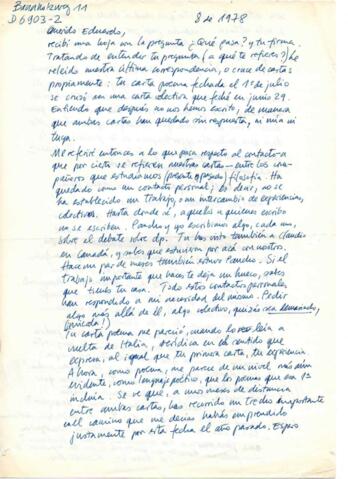 Baumstzweg 11
D 6903-2
8 de 1978
Querido Eduardo,
recibí una hoja con la pregunta ¿Qué pasa? y tu firma.
Tratando de entender tu pregunta (a qué te refieres?) he
releído nuestra última correspondencia, o cruce de cartas
propiamente: tu carta poema fechada el 1º de julio
se cruzó con una carta colectiva que feché en junio 29.
Entiendo que después no nos hemos escrito, de manera
que ambas cartas han quedado sin respuesta, ni mía ni
tuya.
Me referiré entonces a lo que pasa respecto al contacto - a
que por cierto se refieren nuestras cartas - entre los com-
pañeros que estudiamos (presente y pasado) filosofía. Ha
quedado como un contacto personal; es decir, no se
ha establecido un trabajo, o un intercambio de experiencias,
colectivos. Hasta donde sé, aquellos a quienes escribo
no se escriben. Pancho y yo escribimos algo, cada uno,
sobre el debate sobre dp. Tú has visto también a Claudio
en Canadá, y sabes que estuvieron por acá con nosotros.
Hace un par de meses también estuvo Pancho. Si el
trabajo importante que haces te deja un hueco, sabes
que tienes tu casa. Todos estos contactos personales
han respondido a mi necesidad del mismo. Pedir
algo más allá de él, algo colectivo, quizás sea demasiado,
Tu carta poema me pareció, cuando lo leía a
vuelta de Italia, verídica en el sentido que
expresa, al igual que tu primera carta, tu experiencia.
Ahora, como poema, me parece de un nivel más
evidente, como lenguaje poético, que los poemas que esa
incluía. Se ve que, a unos meses de distancia
entre ambas cartas, has recorrido un trecho importante
en el camino que me decías habías emprendido
justamente por esta fecha el año pasado. Espero